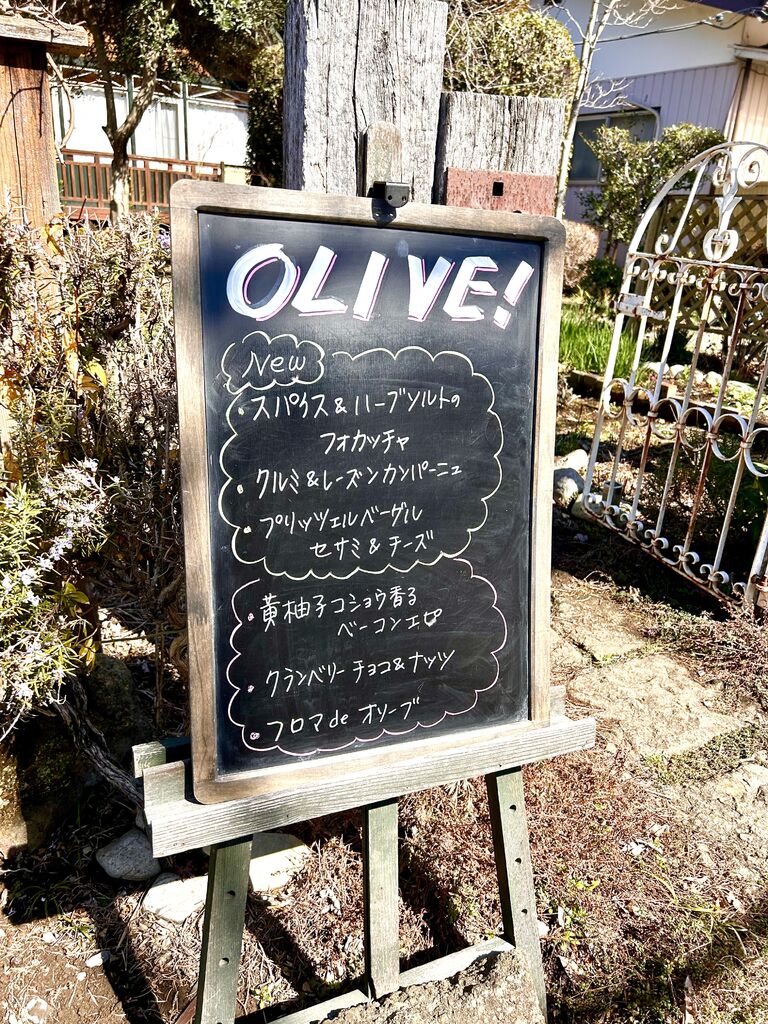 OLIVE!
New
・スパイス&ハーブソルトの
フォカッチャ
・クルミ&レーズンカンパーニュ
・プリッツェルベーグル
セサミ&チーズ
・黄柚子コショウ香る
ベーコンエピ
・クランベリーチョコ&ナッツ
・フロマdeオリーブ